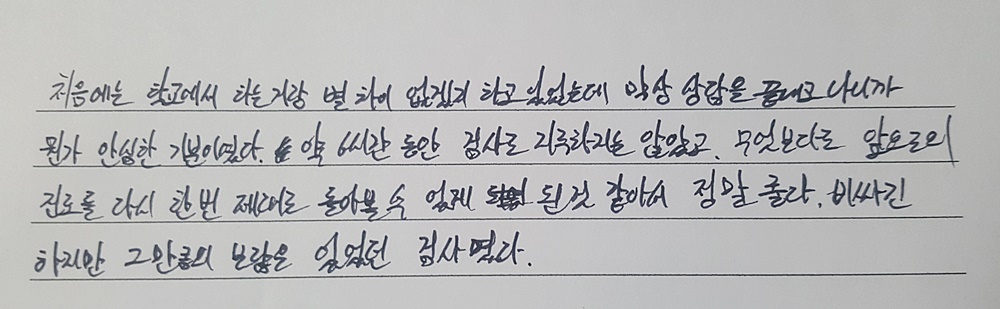 처음에는 학교에서 하는거랑 별 차이 없겠지 하고 있었는데 막상 상담을 끝내고 나니까
뭔가 안심한 기분이였다. 약 6시간 동안 검사로 지루하지는 않았고, 무엇보다도 앞으로의
진로를 다시 한번 제대로 돌아볼 수 있게 된것 같아서 정말 좋다. 비싸긴
하지만 그만큼의 보람은 있었던 검사였다.